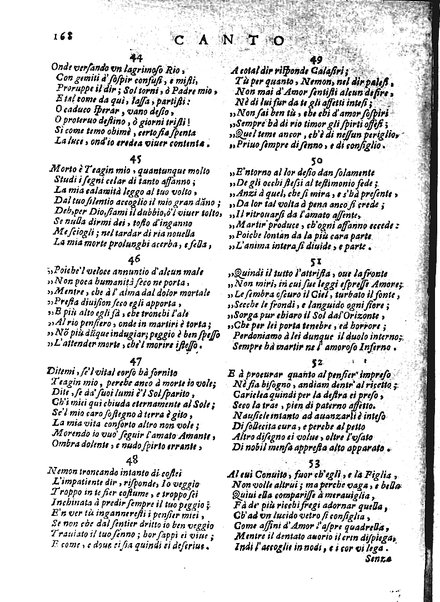 168 CANTO
44
Onde versando vn lagrimoso Rio,
Con gemiti d'sospir confusi, e misti,
Proruppe il dir; Sol torni, ò Padre mio,
E tal come da qui, lassa, partisti:
O caduco sperar, vano desio,
O proteruo destino, ò giorni tristi!
Sì come temo ohimè, certo sia spenta
La luce, ond'io credea viuer contenta.
45
Morto è Teagin mio, quantunque molto
Studi i segni celar di tanto affanno;
La mia calamità leggo al tuo volto,
Dal tuo silentio accoglio il mio gran dãno;
Deh, per Dio, stami il dubbio, ò'l viuer tolto,
Se nulla dirmi dei, tosto d'inganno
Mesciogli; nel tardar di ria nouella
La mia morte prolunghi acerba, e fella,
46
„Poiche'l veloce annuntio d'alcun male
„Non poca humanità seco ne porta,
„Mentre, che à l'alma dal dolor mortale
„Presta diuision seco egli apporta;
„E più alto egli sà, che tronchi l'ale
„Al rio pensiero, onde in martiri è torta;
„Nõ più dũque indugiar; peggio è ben spesso
„L'attender morte, che'l morire istesso.
47
Ditemi, se'l vital corso hà fornito
Teagin mio, perche anco à morte io vole;
Dite, se da' suoi lumi è'l Sol sparito,
Ch'i miei qui chiuda eternamente al Sole;
Se'l mio caro sostegno à terra è gito,
La mia vita conforto altro non vole;
Morendo io vuo' seguir l'amato Amante,
Ombra dolente, e nudo spirto errante.
48
Nemon troncando intanto di costei
L'impatiente dir, risponde, Io veggio
Troppo in te fier costume, e troppo sei
Inchinata à predir sempre il tuo peggio;
E'n ver tù ingannereſti i pensier miei,
Se non che dal sentier dritto io ben veggio
Trauiato il tuo senno; hor sappi ei viue;
E come, e doue si sia quindi ei descriue.
49
A cotal dir risponde Galasiri;
Tù per quanto, Nemon, nel dir palesi,
Non mai d'Amor sentisti alcun desire,
Nè di lui fur da te gli affetti intesi;
„Non sai ben tù, che chi d'amor sospiri
„Sempre hà di rio timor gli spirti offesi;
„Quel teme ancor, ch'è di nessun periglio,
„Priuo sempre di senno, e di consiglio.
50
„E'ntorno al lor desio dan solamente
„De gli occhi stessi al testimonio fede;
„Anzi à quel, che si mira, e c'hà presente,
„Da lor tal volta à pena anco si crede;
„Il ritrouarsi da l'amato assente
„Martir produce, ch'ogni affanno eccede:
„Poiche lontan da la più cara parte
„L'anima intera si diuide, e parte.
51
„Quindi il tutto l'attrista, oue la fronte
„Non miri, in cui sue leggi espresse Amore;
„Le sembra oscuro il Ciel, turbato il fonte,
„Secche le frondi, e languido ogni fiore;
„Sorga pur chiaro il Sol dal'Orizonte,
„Che per lei porta tenebre, ed horrore;
Perdoniamo à lei dunque il duolo interno,
Sempre hà martir ne l'amoroso Inferno.
52
E à procurar quanto al pensier impreso
Nè fia bisogno, andiam dentr' al ricetto;
Cariclea quindi per la destra ei preso,
Seco la trae, pien di paterno affetto.
Nausicle intanto ad auanzarli è inteso
Di sollecita cura, e perche al petto
Altro disegno ei volue, oltre l'vsato
Di nobil mensa appresta alto apparato.
53
Al cui Conuito, fuor ch'egli, e la Figlia,
Non volle altrui; ma perche vaga, e bella
Quiui ella comparisse à merauiglia,
Fà de' più ricchi fregi adornar quella,
Ch'ad vn lucido vetro si consiglia,
Come affini d'Amor l'aspre quadrella,
Mentre il dentato auorio il crin dispiega,
Indi l'accoglie in nodi, e i cor vi lega.
Senza